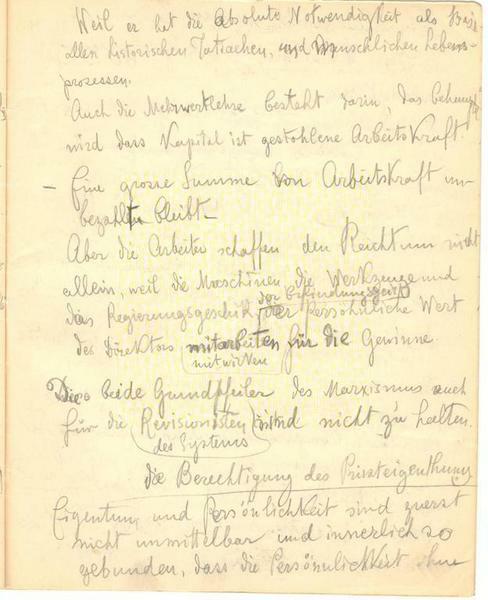 Weil er hat die absolute Notwendigkeit als
allen historischen Tatsachen, und menschlichen Lebens-
prozessen.
Auch die Mehrwertlehre besteht darin, das behaupt
wird dass Kapital ist gestohlene Arbeitskraft.
– Eine grosse Summe von Arbeitskraft un-
bezahlt bleibt –
Aber die Arbeiter schaffen den Reichtum nicht
allein, weil die Maschinen, die Werkzeuge und
der Erfindungsgeist
das Regierungsgeschick, der Persöhnliche Wert
des Direktors mitarbeiten für die Gewinne.
mitwirken
Die beide Grundpfeiler des Marxismus auch
für die Revisionisten sind nicht zu halten.
des Systems
die Berechtigung des Privateigenthums
Eigentum und Persönlichkeit sind zuerst
nicht unmittelbar und innerlich so
gebunden, dass die Persönnlichkeit ohne